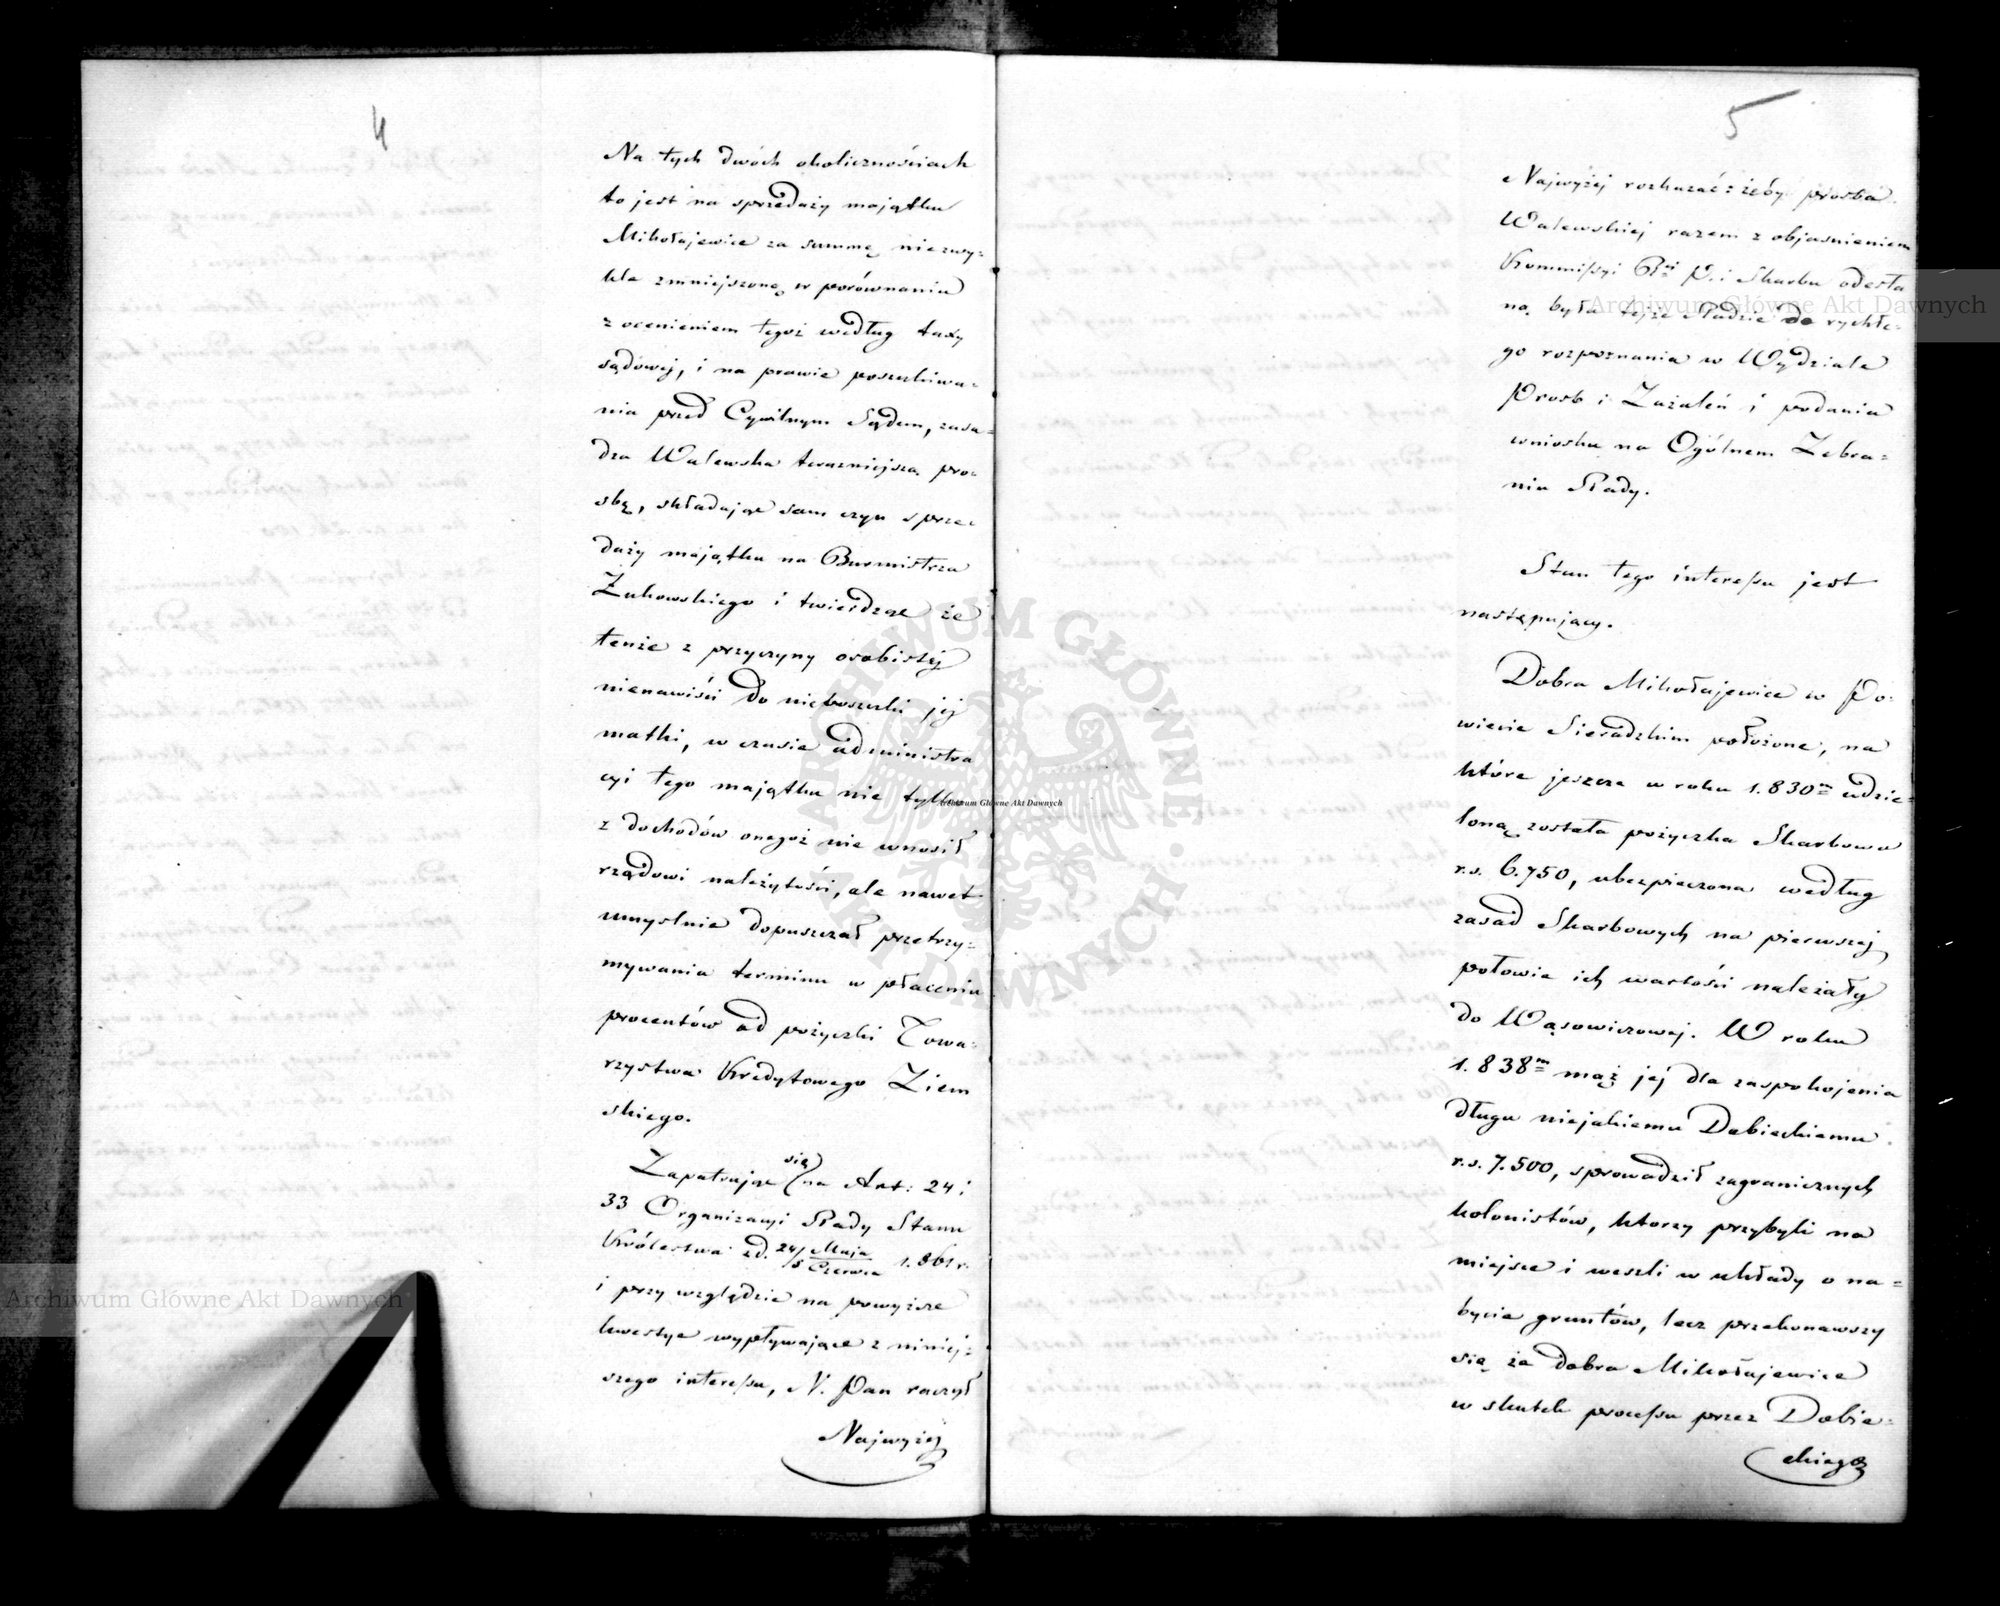 4
Na tych dwóch okolicznościach
to jest na sprzedaży majątku
Mikołajewice za summę niezwy-
kle zmniejszoną w porównaniu
z ocenieniem tegoż według taxy
sądowej, i na prawie poszukiwa-
nia przed Cywilnym Sądem, zasa-
dza Walewska teraźniejszą pro-
śbę, składając sam czyn sprze-
daży majątku na Burmistrza
Żukowskiego i twierdząc że
tenże z przyczyny osobistej
nienawiści do nieboszczki jej
matki, w czasie administra
cyi tego majątku nie tylko
z dochodów onegoż nie wnosił
rządowi należytości, ale nawet
umyslnie dopuszczał przetrzy-
mywania terminu w płaceniu
procentów od pożyczki Towa-
rzystwa Kredytowego Ziem
skiego.
Zapatrując się na Art: 24 i
33 Organizacyi Rady Stanu
Królestwa z d. 24/5 Maja/Czerwca 1.861 r.
i przy względzie na powyższe
kwestye wypływające z niniej-
szego interessu, N. Pan raczył
Najwyżej
5
Najwyżej rozkazać: żeby prośba
Walewskiej razem z objaśnieniem
Kommissyi Rz. P. i Skarbu odesła
ną była tejże Radzie do rychłe-
go rozpoznania w Wydziale
Prosb i Zażaleń i podania
wniosku na Ogólnem Zebra-
niu Rady.
Stan tego interessu jest
następujący.
Dobra Mikołajewice w Po-
wiecie Sieradzkim położone, na
które jeszcze w roku 1.830m udzie-
loną została pożyczka Skarbowa
r.s. 6.750, ubezpieczona według
zasad Skarbowych na pierwszej
połowie ich wartości należały
do Wąsowiczowej. W roku
1.838m mąż jej dla zaspokojenia
długu niejakiemu Dobieckiemu
r.s. 7.500, sprowadził zagranicznych
kolonistów, ktorzy przybyli na
miejsce i weszli w układy o na-
bycie gruntów, lecz przekonawszy
się że dobra Mikołajewice
w skutek processu przez Dobie-
ckiego
Archiwum Główne Akt Dawnych
Archiwum Główne Akt Dawnych
Archiwum Główne Akt Dawnych
ARCHIWUM GŁÓWNE AKT DAWNYCH